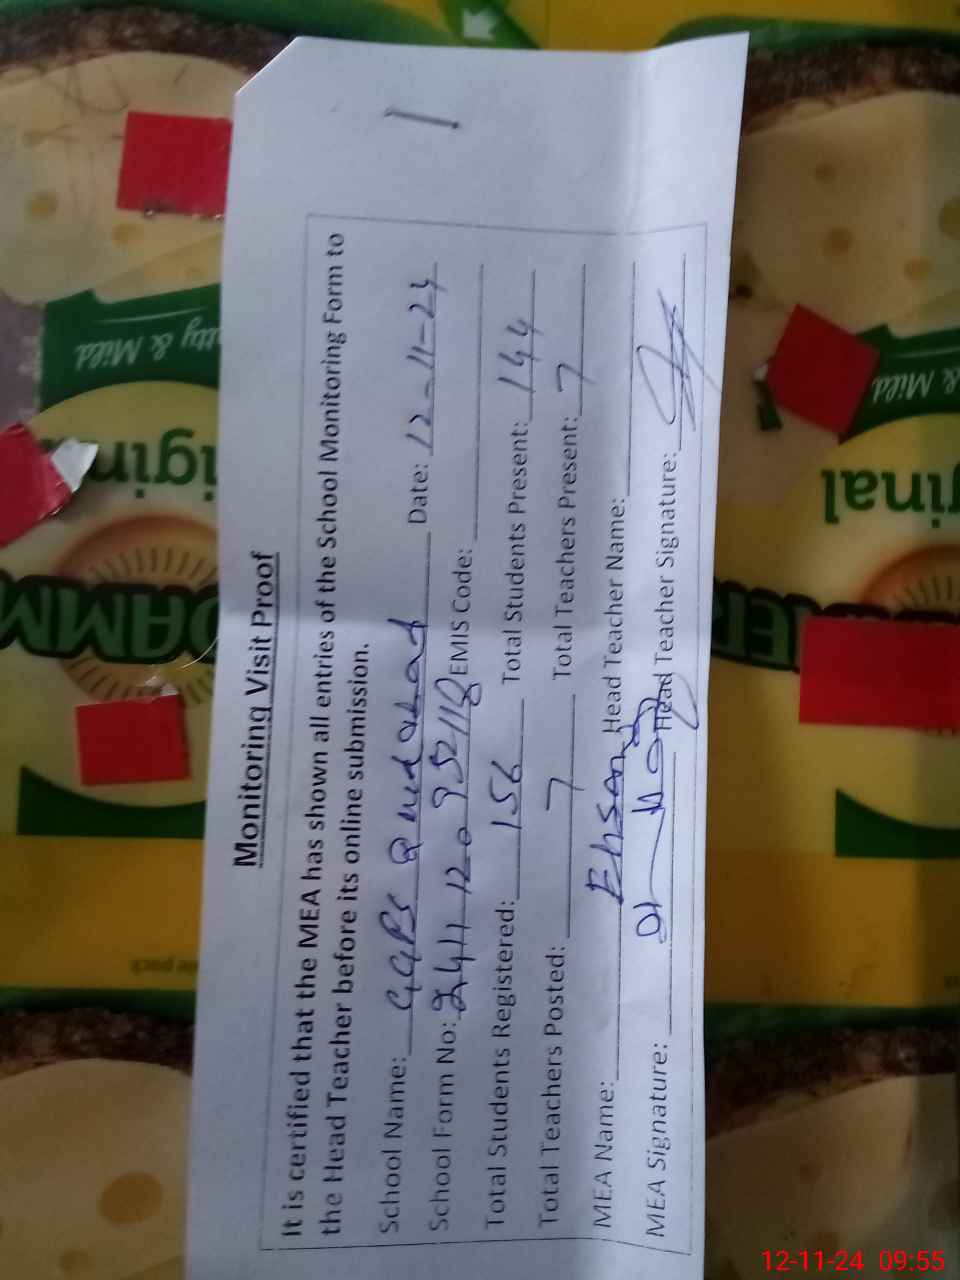 Monitoring Visit Proof
It is certified that the MEA has shown all entries of the School Monitoring Form to
the Head Teacher before its online submission.
School Name: GGPS Date: 12-11-24
School Form No: EMIS Code:
Total Students Registered: 156 Total Students Present: 144
Total Teachers Posted: 7 Total Teachers Present: 7
MEA Name: Ehsan Head Teacher Name:
MEA Signature: Head Teacher Signature:
tty & Mild
& Mild
iginal
12-11-24 09:55